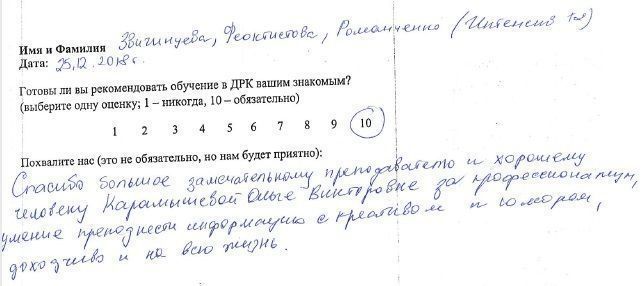 Имя и Фамилия Звигинцева, Феоктистова, Романченко (Интенсив 1й)
Дата: 25.12.2018г.
Готовы ли вы рекомендовать обучение в ДРК вашим знакомым?
(выберите одну оценку; 1 – никогда, 10 – обязательно)
1 2 3 4 5 6 7 8 9 10
Похвалите нас (это не обязательно, но нам будет приятно):
Спасибо большое замечательному преподавателю и хорошему
человеку Карамышевой Ольге Викторовне за профессионализм,
умение преподнести информацию с креативом и юмором,
доходчиво и на всю жизнь.